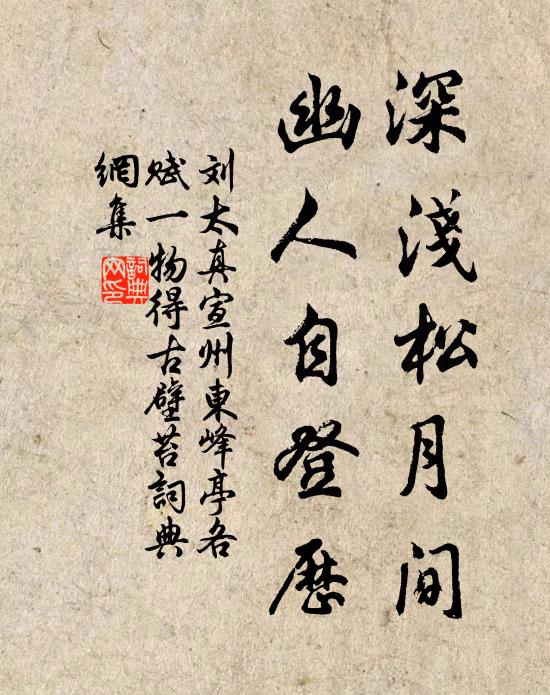 深淺松月间
幽人自登歷
刘太真宣州東峰亭各
赋一物得古壁苔詞典
網集
詞典
网印